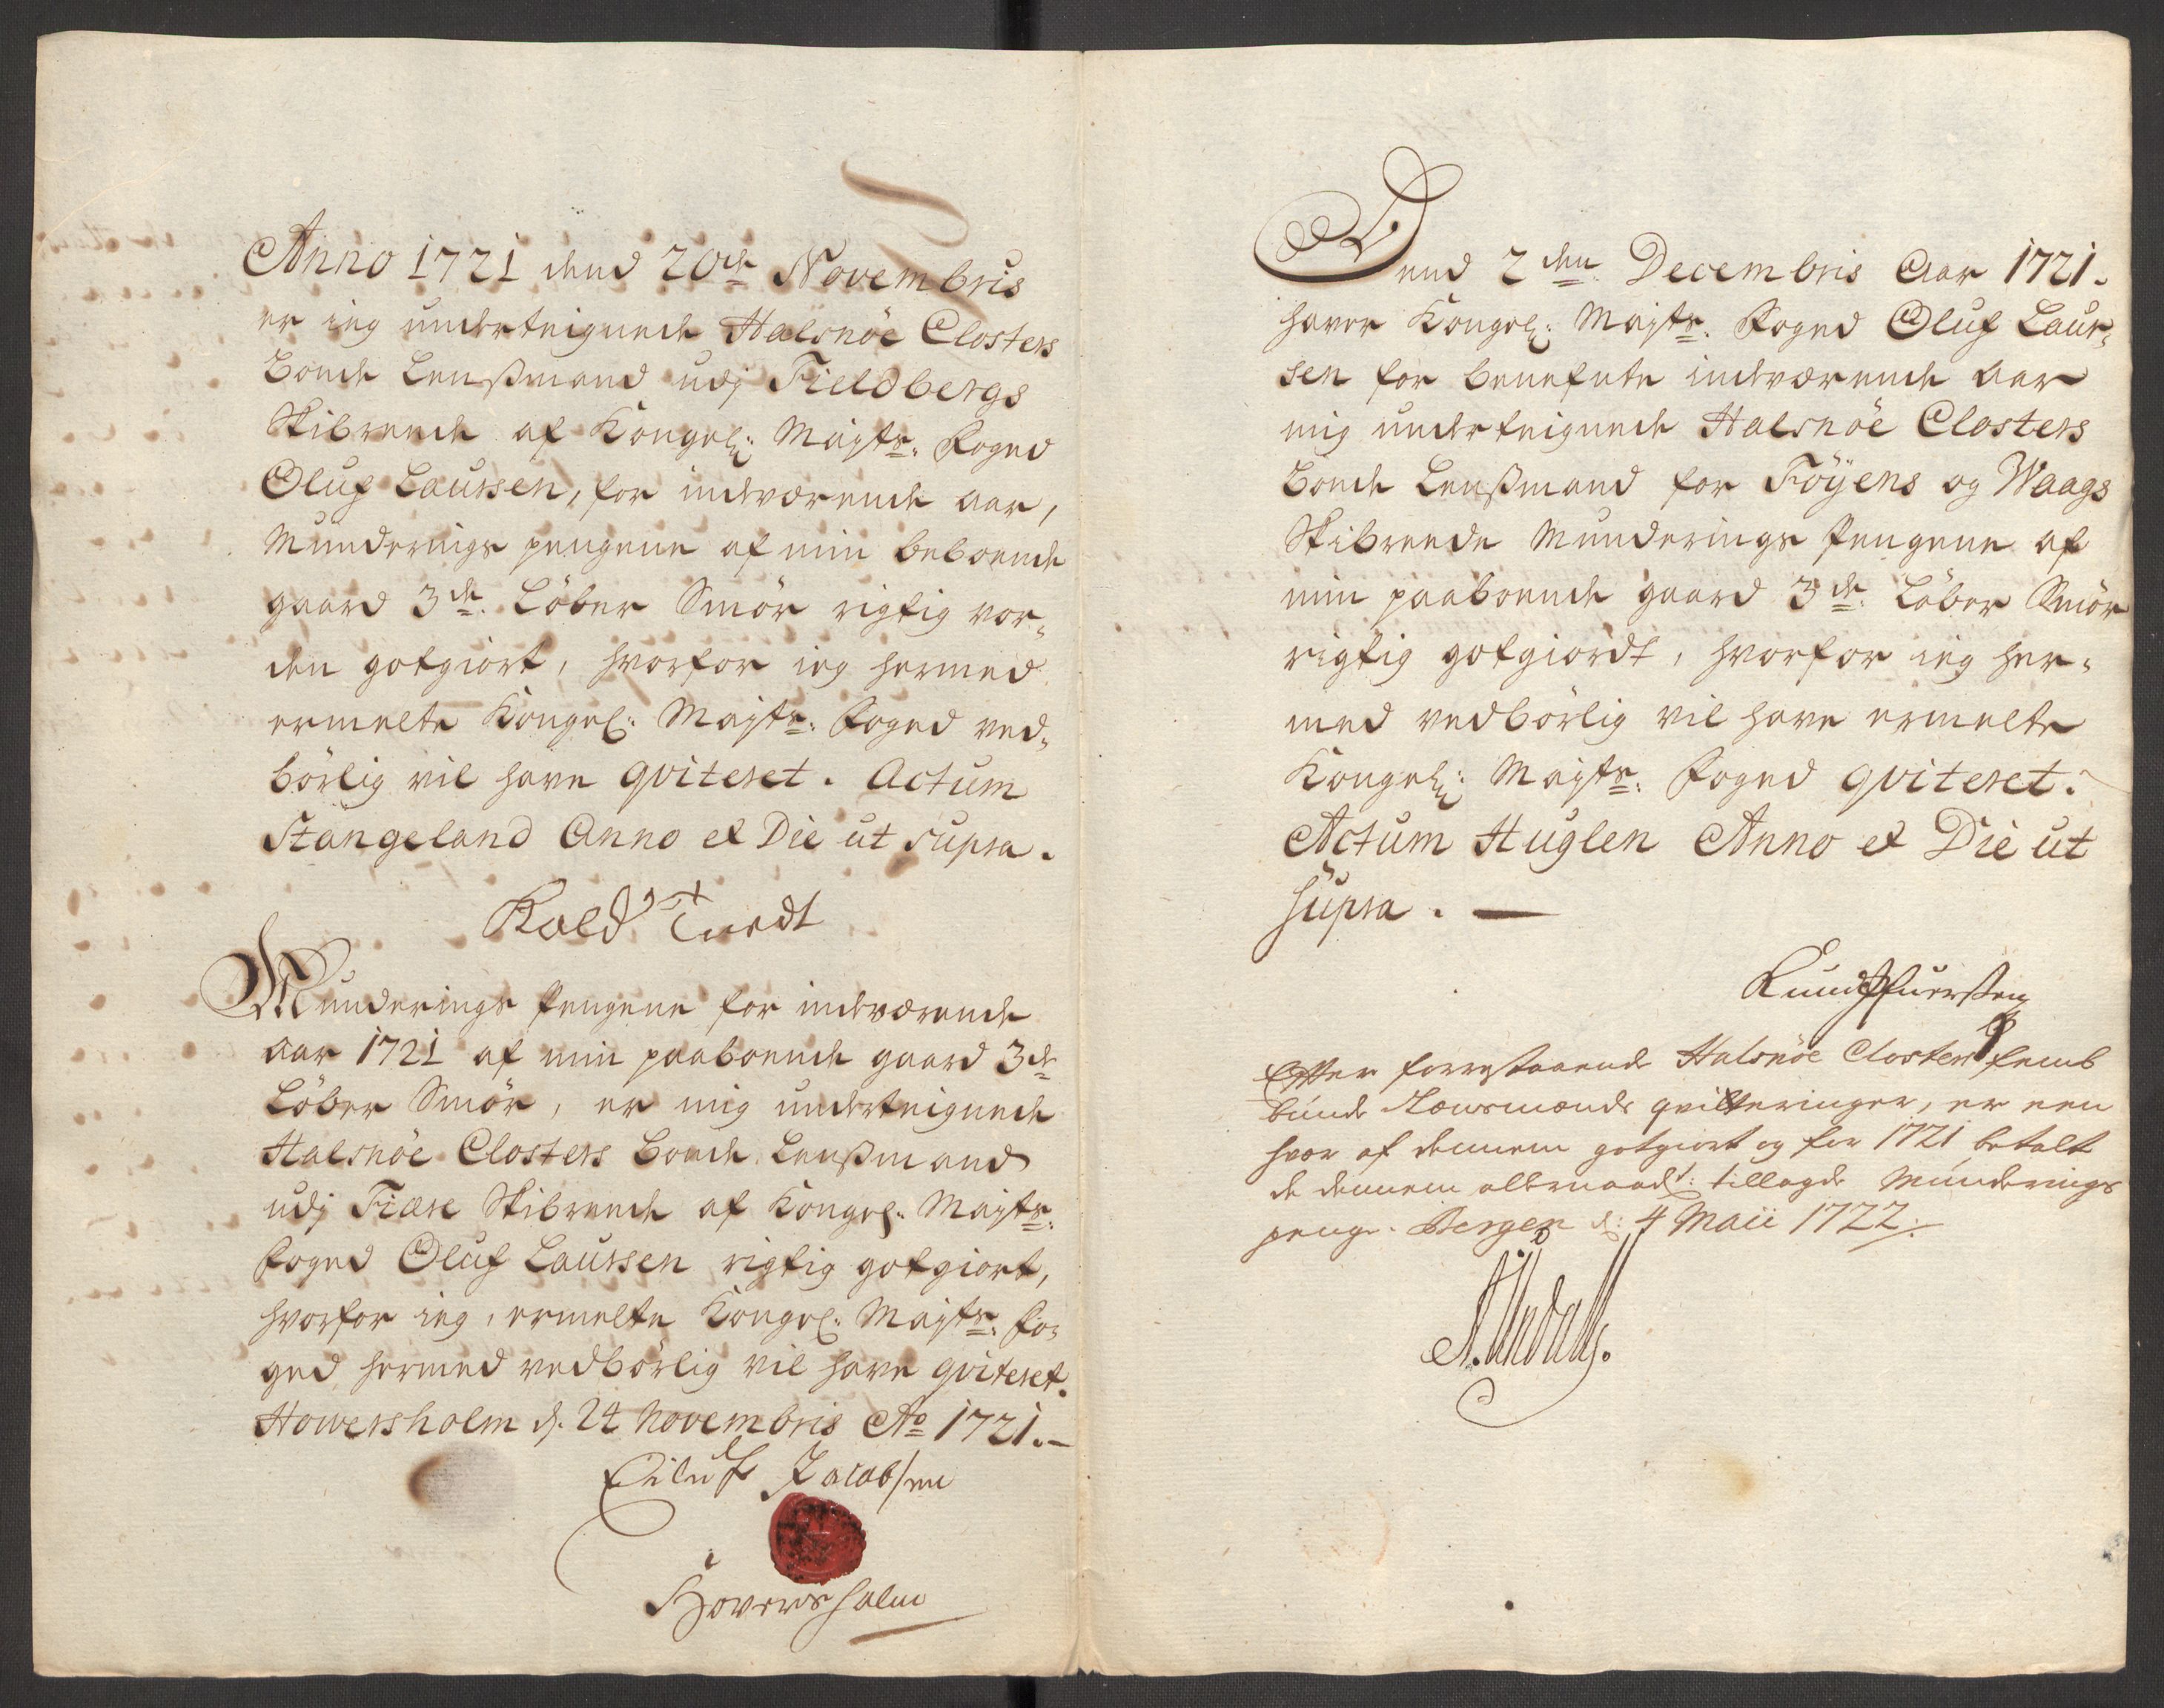 Anno 1721 dend 20de Novembris
er ieg underteignede Halsnöe Closters
Bonde Lenßmand udj Fieldbergs
Skibrende af Kongel: Maÿts: Foged
Oluf Laursen, for indværende aar,
Munderings pengene af min beboende
gaard 3de Löber Smör rigtig vor-
den gotgiort, hvorfor ieg hermed
ermelte Kongel: Mayts: Foged ved-
börlig vil have qviteret. Actum
Stangeland Anno et Die ut supra.
Munderings Pengene for indværende
aar 1721 af min paaboende gaard 3de
Löber Smör, er mig underteignede
Halsnöe Closters Bonde Lenßmand
udj Fiære Skibrende af Kongel: Mayts:
Foged Oluf Laursen rigtig gotgiort,
hvorfor ieg, ermelte Kongel: Mayts: Fo-
ged hermed vedbörlig vil have qviteret.
Howersholm d. 24 Novembris Ao 1721.
Eiluf Jacobsen
Hoversholm
Dend 2den Decembris Aar 1721.
haver Kongel: Mayts: Foged Oluf Laur-
sen for benefnte indværende aar
mig underteignede Halsnöe Closters
Bonde Lenßmand for Föÿens og Waags
Skibreede Munderings Pengene af
min paaboende gaard 3de Löber Smör
rigtig gotgiordt, hvorfor ieg her-
med vedbörlig vil have ermelte
Kongel: Mayts: Foged qviteret.
Actum Huglen Anno et Die ut
supra.
Efter forrestaaende Halsnöe Closters femb
bunde Lensmænds qvitteringer, er een
hver af dennem gotgiort og for 1721 betalt
de dennem allernaadt: tillagde Munderings
penge. Bergen d: 4 Maii 1722.